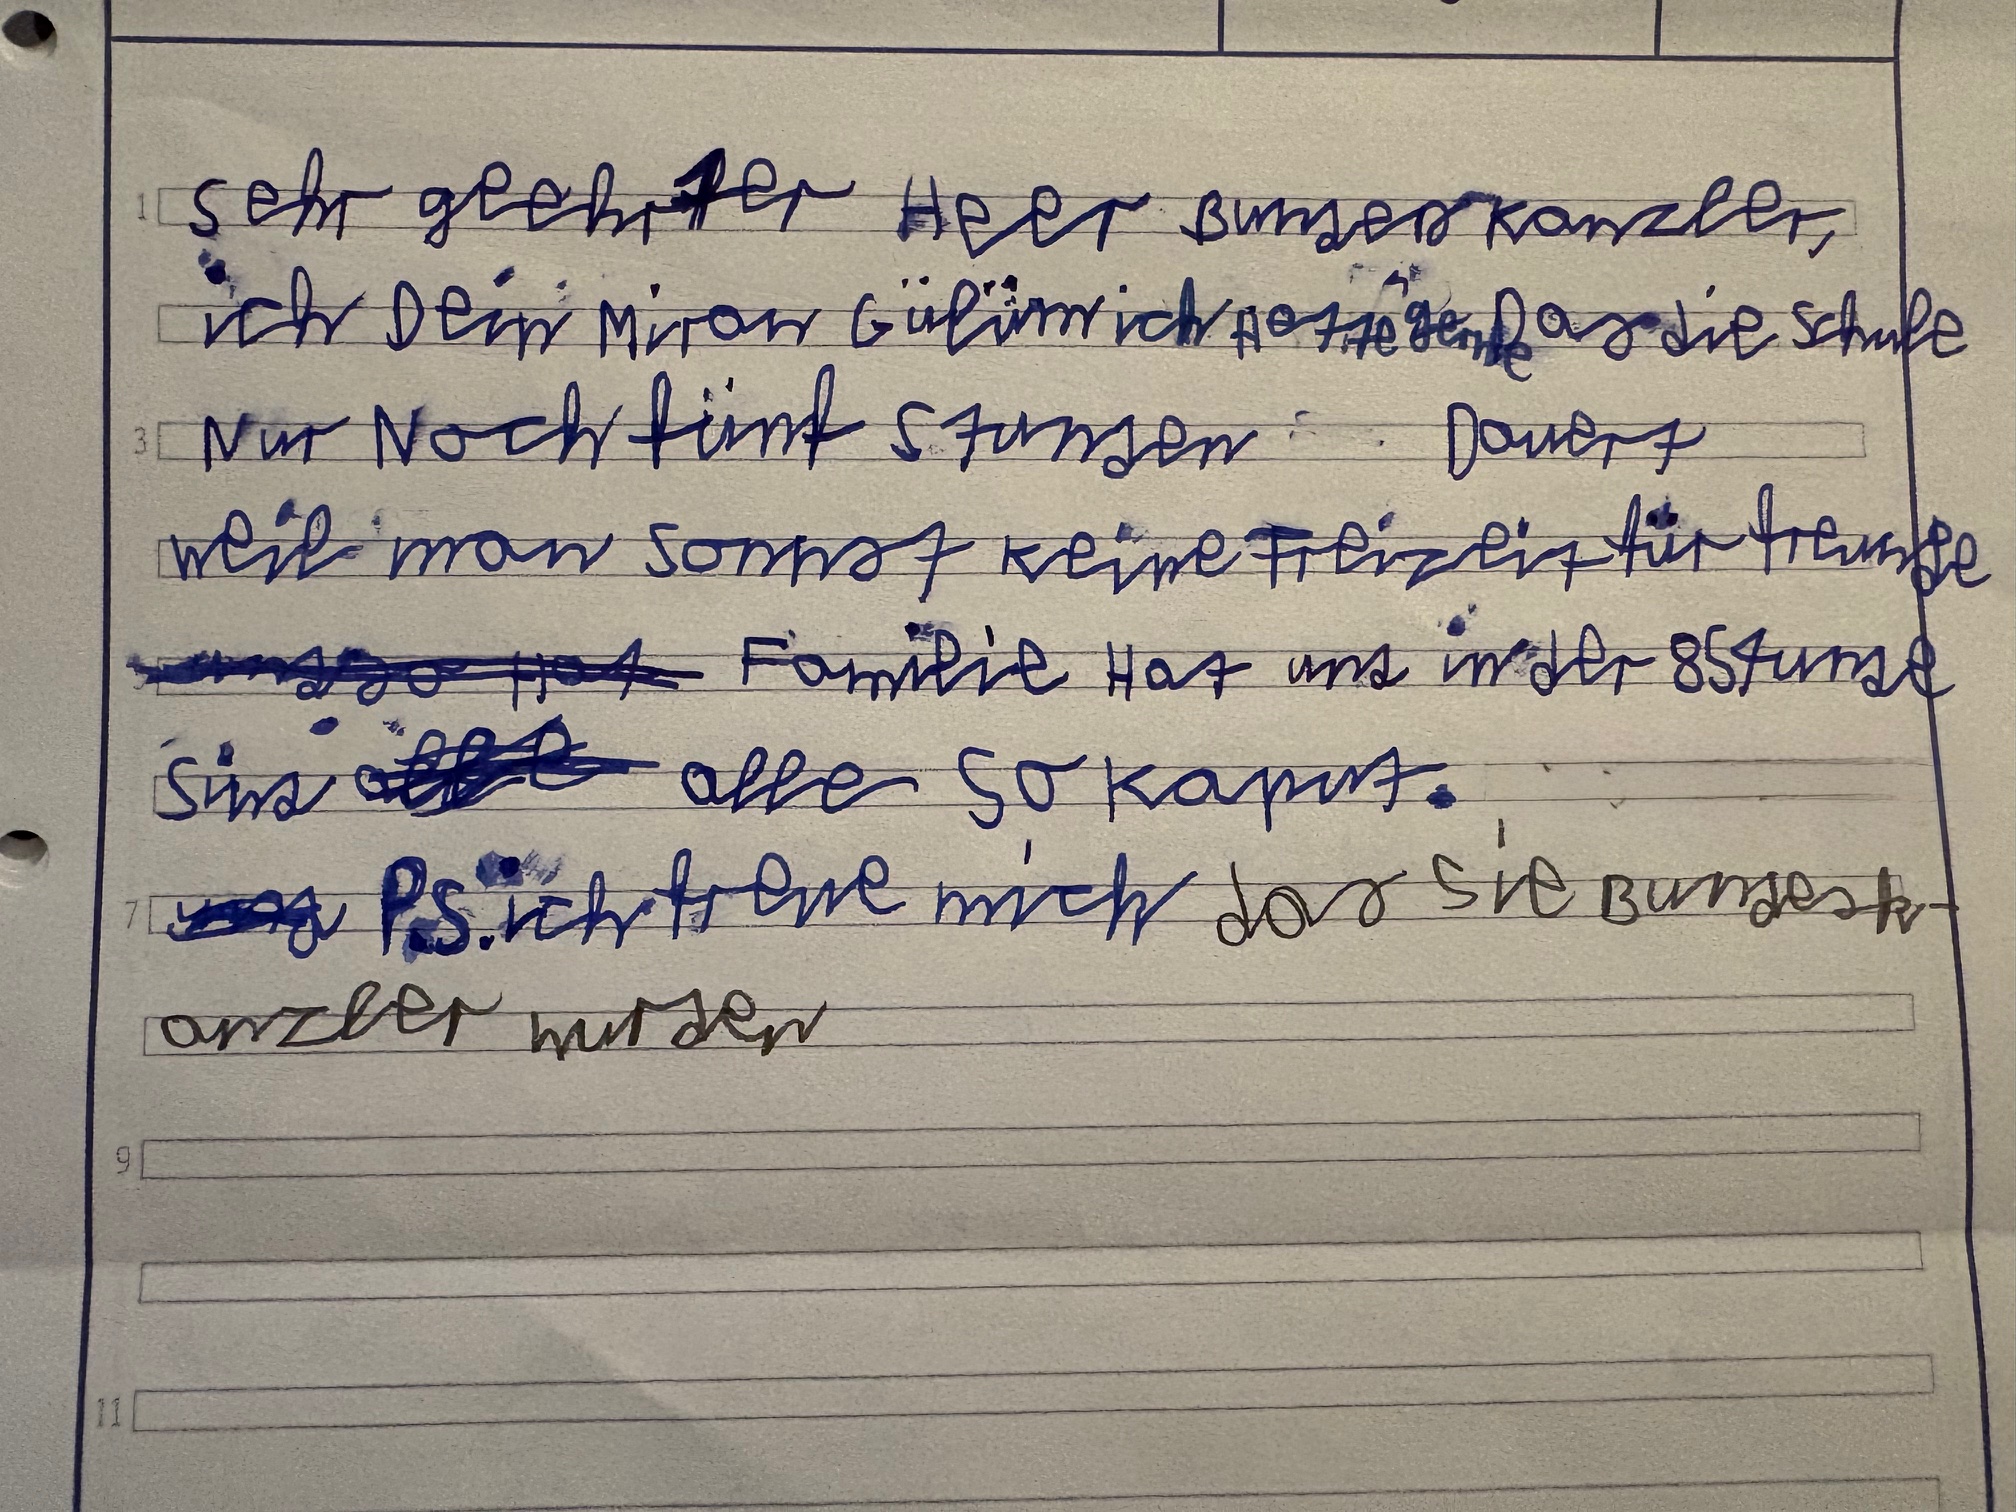 1 sehr geehrter Heer Bundeskanzler,
ich Dein Miran Gülüm ich Hätte gerne Das die Schule
3 Nur Noch fünf Stunden Dauert
weil man sonnst keine Freizeit für freunde
Familie Hat uns in der 8 Stunde
sind alle so kaput.
7 P.S. ich freue mich das Sie Bundesk-
anzler wurden
9
11